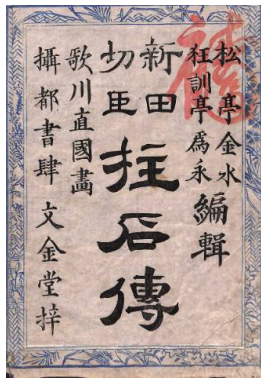 松亭金水
狂訓亭為永
編輯
新田
功臣
拄石傳
歌川直國畵
攝都書肆 文金堂梓